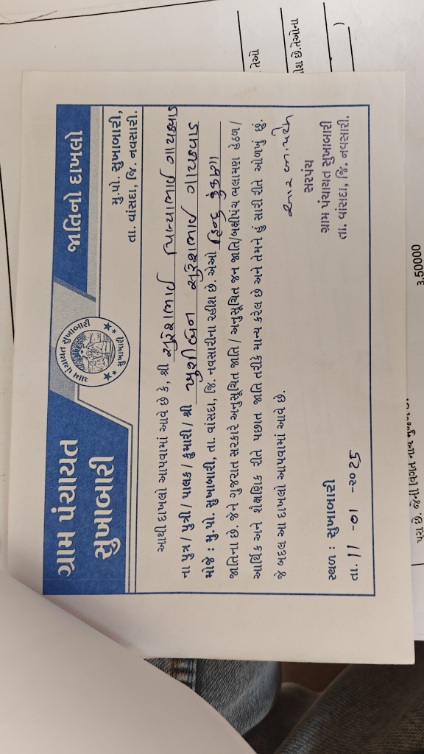 ગ્રામ પંચાયત
સુખાબારી
ગ્રામ પંચાયત સુખાબારી
સુખાબારી
જાતિનો દાખલો
મુ.પો. સુખાબારી,
તા. વાંસદા, જિ. નવસારી.
આથી દાખલો આપવામાં આવે છે કે, શ્રી સુરેશભાઈ ગાયકવાડ
ના પુત્ર / પુત્રી / પાલક / કુમારી / શ્રી ખુશીબેન સુરેશભાઈ ગાયકવાડ
મોજે : મુ.પો. સુખાબારી. તા. વાંસદા, જિ. નવસારીના રહીશ છે. એઓ હિન્દુ કુકણા
જાતિના છે. જેને ગુજરાત સરકારે અનુસૂચિત જાતિ / અનુસૂચિત જન જાતિ/બક્ષીપંચ ભલામણ હેઠળ/
આર્થિક અને શૈક્ષણિક રીતે પછાત જાતિ તરીકે માન્ય કરેલ છે અને તેમને હું સારી રીતે ઓળખું છું.
જે બદલ આ દાખલો આપવામાં આવે છે.
સ્થળ : સુખાબારી
તા. 11 -01 -2025
સરપંચ
ગ્રામ પંચાયત સુખાબારી
તા. વાંસદા, જિ. નવસારી.
તેઓ
છે.તેઓના
)
3,50000